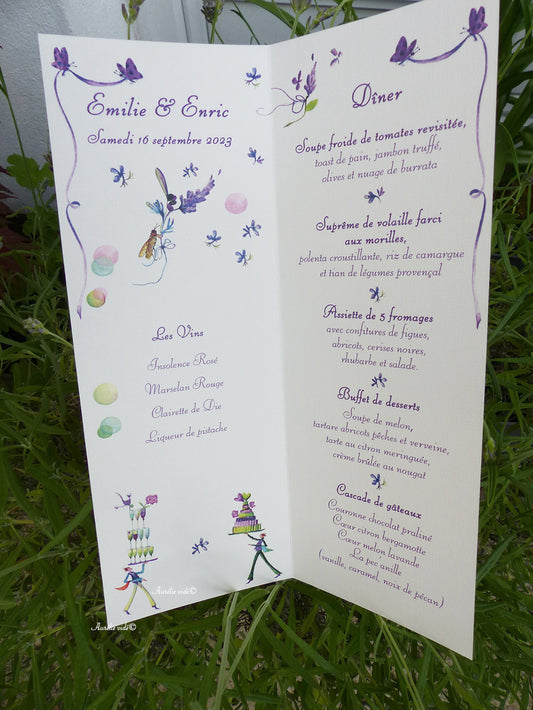 Emilie & Enric
Samedi 16 septembre 2023
Les Vins
Insolence Rosé
Marselan Rouge
Clairette de Die
Liqueur de pistache
Aurélie vidé©
Aurélie vidé©
Dîner
Soupe froide de tomates revisitée,
toast de pain, jambon truffé,
olives et nuage de burrata
Suprême de volaille farci
aux morilles,
polenta croustillante, riz de camargue
et tian de légumes provençal
Assiette de 5 fromages
avec confitures de figues,
abricots, cerises noires,
rhubarbe et salade.
Buffet de desserts
Soupe de melon,
tartare abricots pêches et verveine,
tarte au citron meringuée,
crème brûlée au nougat
Cascade de gâteaux
Couronne chocolat praliné
Cœur citron bergamotte
Cœur melon lavande
La pec'anille
(vanille, caramel, noix de pécan)